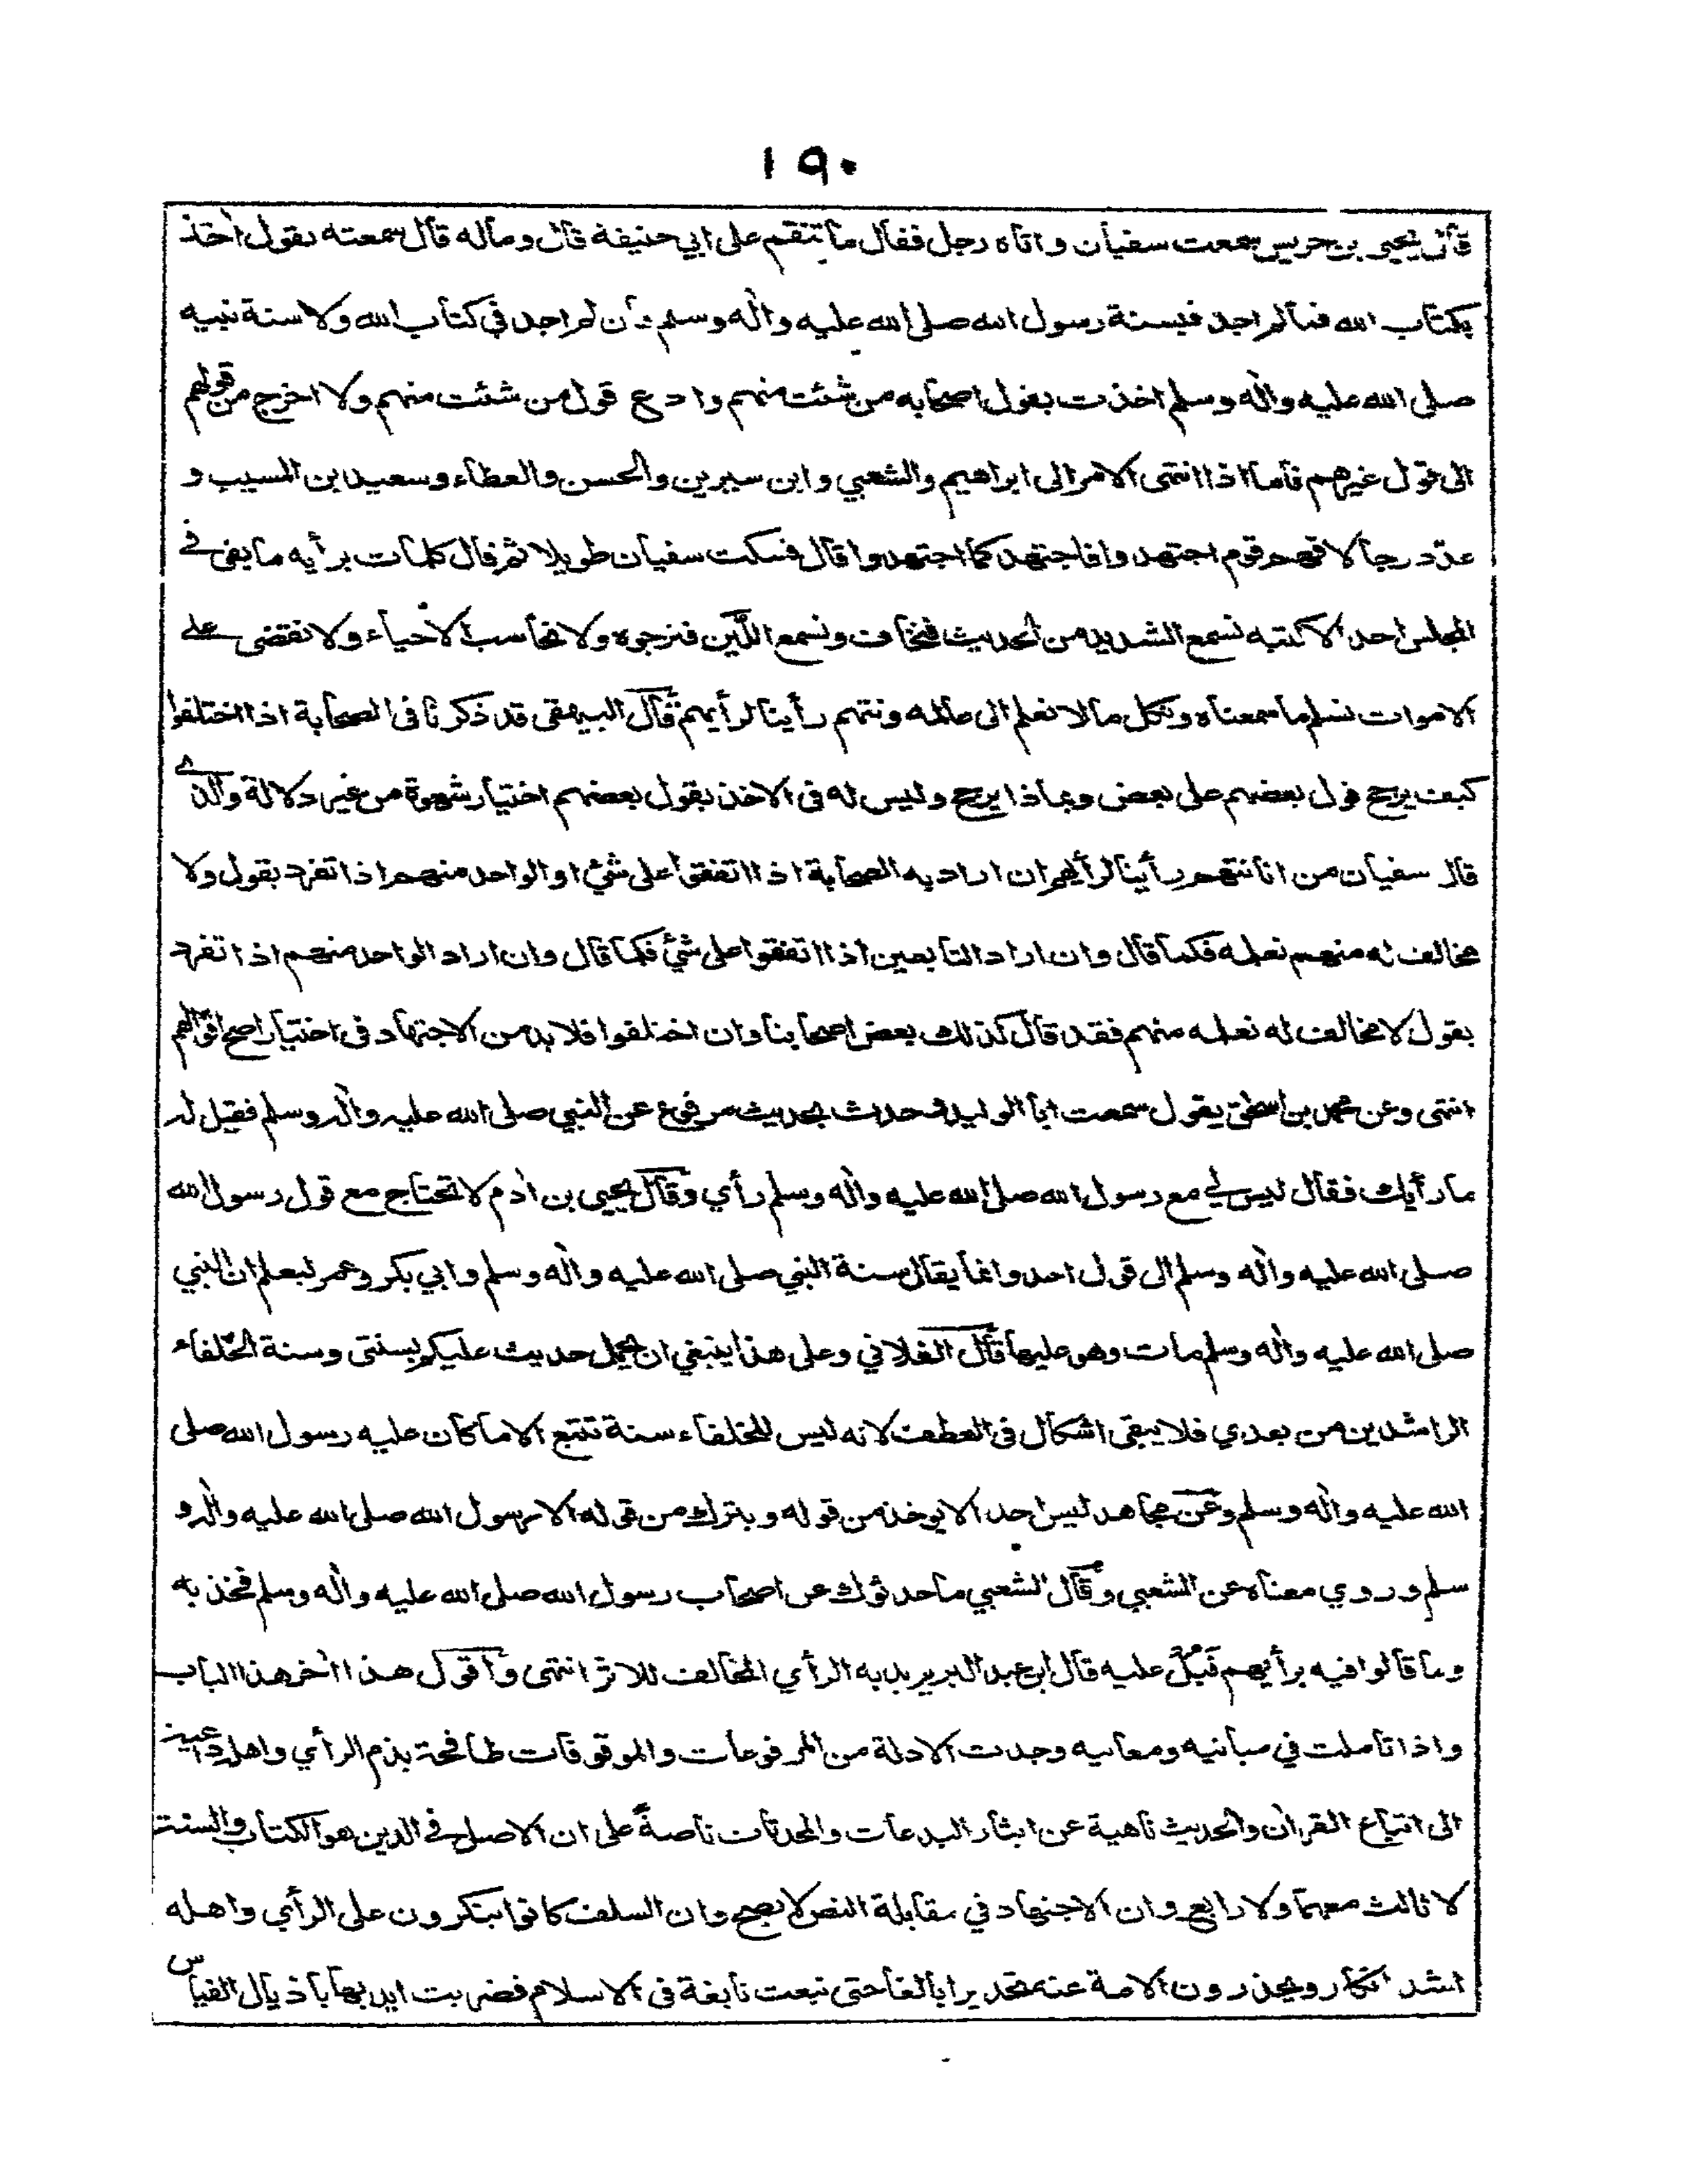 ١٩٠
قال يحيى بن حريس سمعت سفيان واتاه رجل فقال ما تنقم على ابي حنيفة قال وماله قال سمعته يقول اخذ
بكتاب الله فمالم اجد فبسنة رسول الله صلى الله عليه واٰله وسلم فان لم اجد في كتاب الله ولا سنة نبيه
صلى الله عليه واٰله وسلم اخذت بقول اصحابه من شئت منهم وادع قول من شئت منهم ولا اخرج من قولهم
الى قول غيرهم فاما اذا انتهى الامر الى ابراهيم والشعبي وابن سيرين والحسن والعطاء وسعيد ابن المسيب و
عدد رجالا فهم قوم اجتهدوا فاجتهد كما اجتهدوا قال فسكت سفيان طويلا ثم قال كلمات برأيه ما بقى في
المجلس احد الا كتبه نسمع الشديد من الحديث فنخاف ونسمع اللين فنرجوه ولا نحاسب الاحياء ولا نقضى على
الاموات نسلم ما سمعناه ونكل مالا نعلم الى عالمه ونتهم رأينا لرأيهم قال البيهقى قد ذكرنا في الصحابة اذا اختلفوا
كيف يرجح قول بعضهم على بعض وبماذا يرجح وليس له في الاخذ بقول بعضهم اختيار شهوة من غير دلالة والذي
قال سفيان من انا نتهم رأينا لرأيهم ان اراد به الصحابة اذا اتفقوا على شئ او الواحد منهم اذا تفرد بقول ولا
مخالف له منهم نعلمه فكما قال وان اراد التابعين اذا اتفقوا على شئ فكما قال وان اراد الواحد منهم اذا تفرد
بقول لا مخالف له نعلمه منهم فقد قال كذلك بعض اصحابنا وان اختلفوا فلا بد من الاجتهاد في اختيار اصح اقوالهم
انتهى وعن محمد بن اسحق يقول سمعت ابا الوليد وحدث بحديث مرفوع عن النبي صلى الله عليه واٰله وسلم فقيل له
ما رأيك فقال ليس لي مع رسول الله صلى الله عليه واٰله وسلم رأي وقال يحيى بن اٰدم لا تحتاج مع قول رسول الله
صلى الله عليه واٰله وسلم الى قول احد وانما يقال سنة النبي صلى الله عليه واٰله وسلم وابي بكر وعمر ليعلم ان النبي
صلى الله عليه واٰله وسلم مات وهو عليها قال الفلاني وعلى هذا ينبغي ان يحمل حديث عليكم بسنتى وسنة الخلفاء
الراشدين من بعدي فلا يبقى اشكال في العطف لانه ليس للخلفاء سنة تتبع الا ما كان عليه رسول الله صلى
الله عليه واٰله وسلم وعن مجاهد ليس احد الا يوخذ من قوله ويترك من قوله الا رسول الله صلى الله عليه واٰله و
سلم وروي معناه عن الشعبي وقال الشعبي ما حدثوك عن اصحاب رسول الله صلى الله عليه واٰله وسلم فخذ به
وما قالوا فيه برأيهم فَبُلْ عليه قال ابن عبد البر يريد به الرأي المخالف للاثر انتهى واقول هذا اٰخر هذا الباب
واذا تأملت في مبانيه ومعانيه وجدت الادلة من المرفوعات والموقوفات طافحة بذم الرأي واهله داعية
الى اتباع القراٰن والحديث ناهية عن ايثار البدعات والمحدثات ناصةً على ان الاصل في الدين هو الكتاب والسنة
لا ثالث معهما ولا رابع وان الاجتهاد في مقابلة النص لا يصح وان السلف كانوا ينكرون على الرأي واهله
اشد انكار ويحذرون الامة عنه تحذيرا بالغا حتى نبعت نابغة في الاسلام فضربت ايديها باذيال القياس